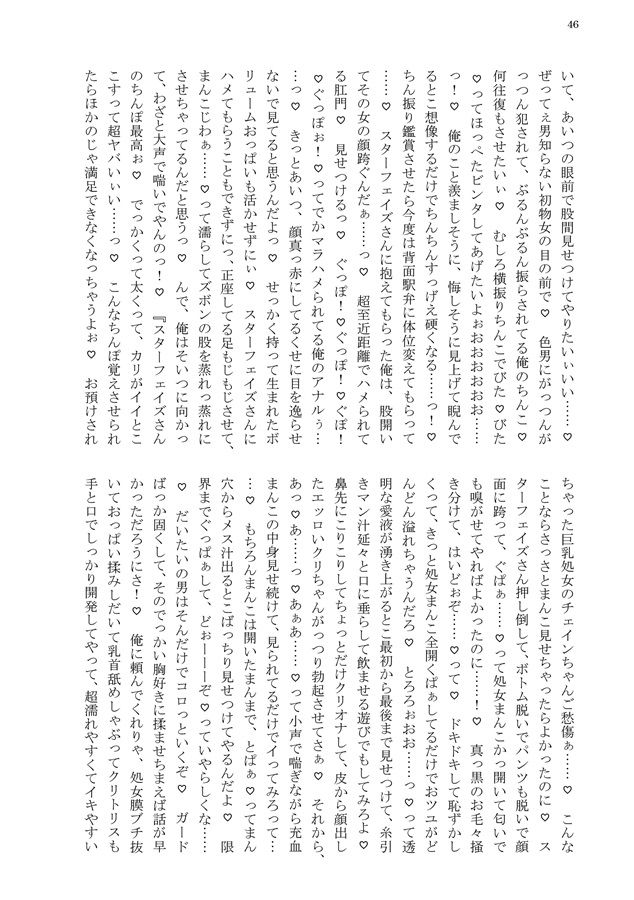 46
いて、あいつの眼前で股間見せつけてやりたいぃいい……♡
ぜってぇ男知らない初物女の目の前で♡　色男にがっつんが
っつん犯されて、ぶるんぶるん振らされてる俺のちんこ♡
何往復もさせたいぃ♡　むしろ横振りちんこでびた♡びた
♡ってほっぺたビンタしてあげたいよぉおおおおおお……
っ！♡　俺のこと羨ましそうに、悔しそうに見上げて睨んで
るとこ想像するだけでちんちんすっげえ硬くなる……っ！♡
ちん振り鑑賞させたら今度は背面駅弁に体位変えてもらって
……♡　スターフェイズさんに抱えてもらった俺は、股開い
てその女の顔跨ぐんだぁ……っ♡　超至近距離でハメられて
る肛門♡　見せつけるっ♡　ぐっぽ！♡ぐっぽ！♡ぐぽ！
♡ぐっぽぉ！♡ってでかマラハメられてる俺のアナルぅ…
…っ♡　きっとあいつ、顔真っ赤にしてるくせに目を逸らせ
ないで見てると思うんだよっ♡　せっかく持って生まれたボ
リュームおっぱいも活かせずにぃ♡　スターフェイズさんに
ハメてもらうこともできずにっ、正座してる足もじもじさせて、
まんこじわぁ……♡って濡らしてズボンの股を蒸れっ蒸れに
させちゃってるんだと思うっ♡　んで、俺はそいつに向かっ
て、わざと大声で喘いでやんのっ！♡　『スターフェイズさん
のちんぽ最高ぉ♡　でっかくって太くって、カリがイイとこ
こすって超ヤバいぃい……っ♡　こんなちんぽ覚えさせられ
たらほかのじゃ満足できなくなっちゃうよぉ♡　お預けされ
ちゃった巨乳処女のチェインちゃんご愁傷ぁ……♡　こんな
ことならさっさとまんこ見せちゃったらよかったのに♡　ス
ターフェイズさん押し倒して、ボトム脱いでパンツも脱いで顔
面に跨って、ぐぱぁ……♡って処女まんこかっ開いて匂いで
も嗅がせてやればよかったのに……！♡　真っ黒のお毛々掻
き分けて、はいどぉぞ……♡って♡　ドキドキして恥ずかし
くって、きっと処女まんこ全開くぱぁしてるだけでおツユがど
んどん溢れちゃうんだろ♡　とろろぉおお……っ♡って透
明な愛液が湧き上がるとこ最初から最後まで見せつけて、糸引
きマン汁延々と口に垂らして飲ませる遊びでもしてみろよ♡
鼻先にこりこりしてちょっとだけクリオナして、皮から顔出し
たエッロいクリちゃんがっつり勃起させてさぁ♡　それから、
あっ♡あ……っ♡あぁあ……♡って小声で喘ぎながら充血
まんこの中身見せ続けて、見られてるだけでイってみろって…
…♡　もちろんまんこは開いたまんまで、とぱぁ♡ってまん
穴からメス汁出るとこばっちり見せつけてやるんだよ♡　限
界までぐっぱぁして、どぉーーーぞ♡っていやらしくな……
♡　だいたいの男はそんだけでコロっといくぞ♡　ガード
ばっか固くして、そのでっかい胸好きに揉ませちまえば話が早
かっただろうにさ！♡　俺に頼んでくれりゃ、処女膜ブチ抜
いておっぱい揉みしだいて乳首舐めしゃぶってクリトリスも
手と口でしっかり開発してやって、超濡れやすくてイキやすい